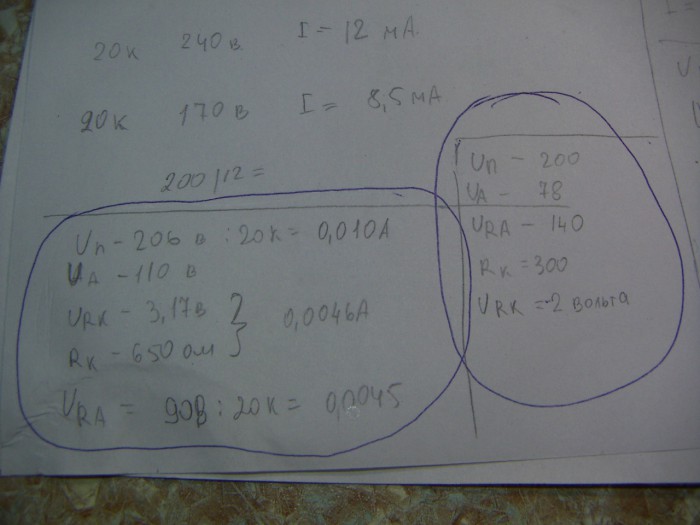 20к 240в I = 12 мА
20к 170в I = 8,5мА
200/12=
Uп - 206 в : 20к = 0,010А
UА - 110 в
URK - 3,17в } 0,0046А
RK - 650 ом
URA = 90В : 20к = 0,0045
Uп - 200
UА - 78
URA - 140
RK = 300
URK = 2 вольта
I =
U